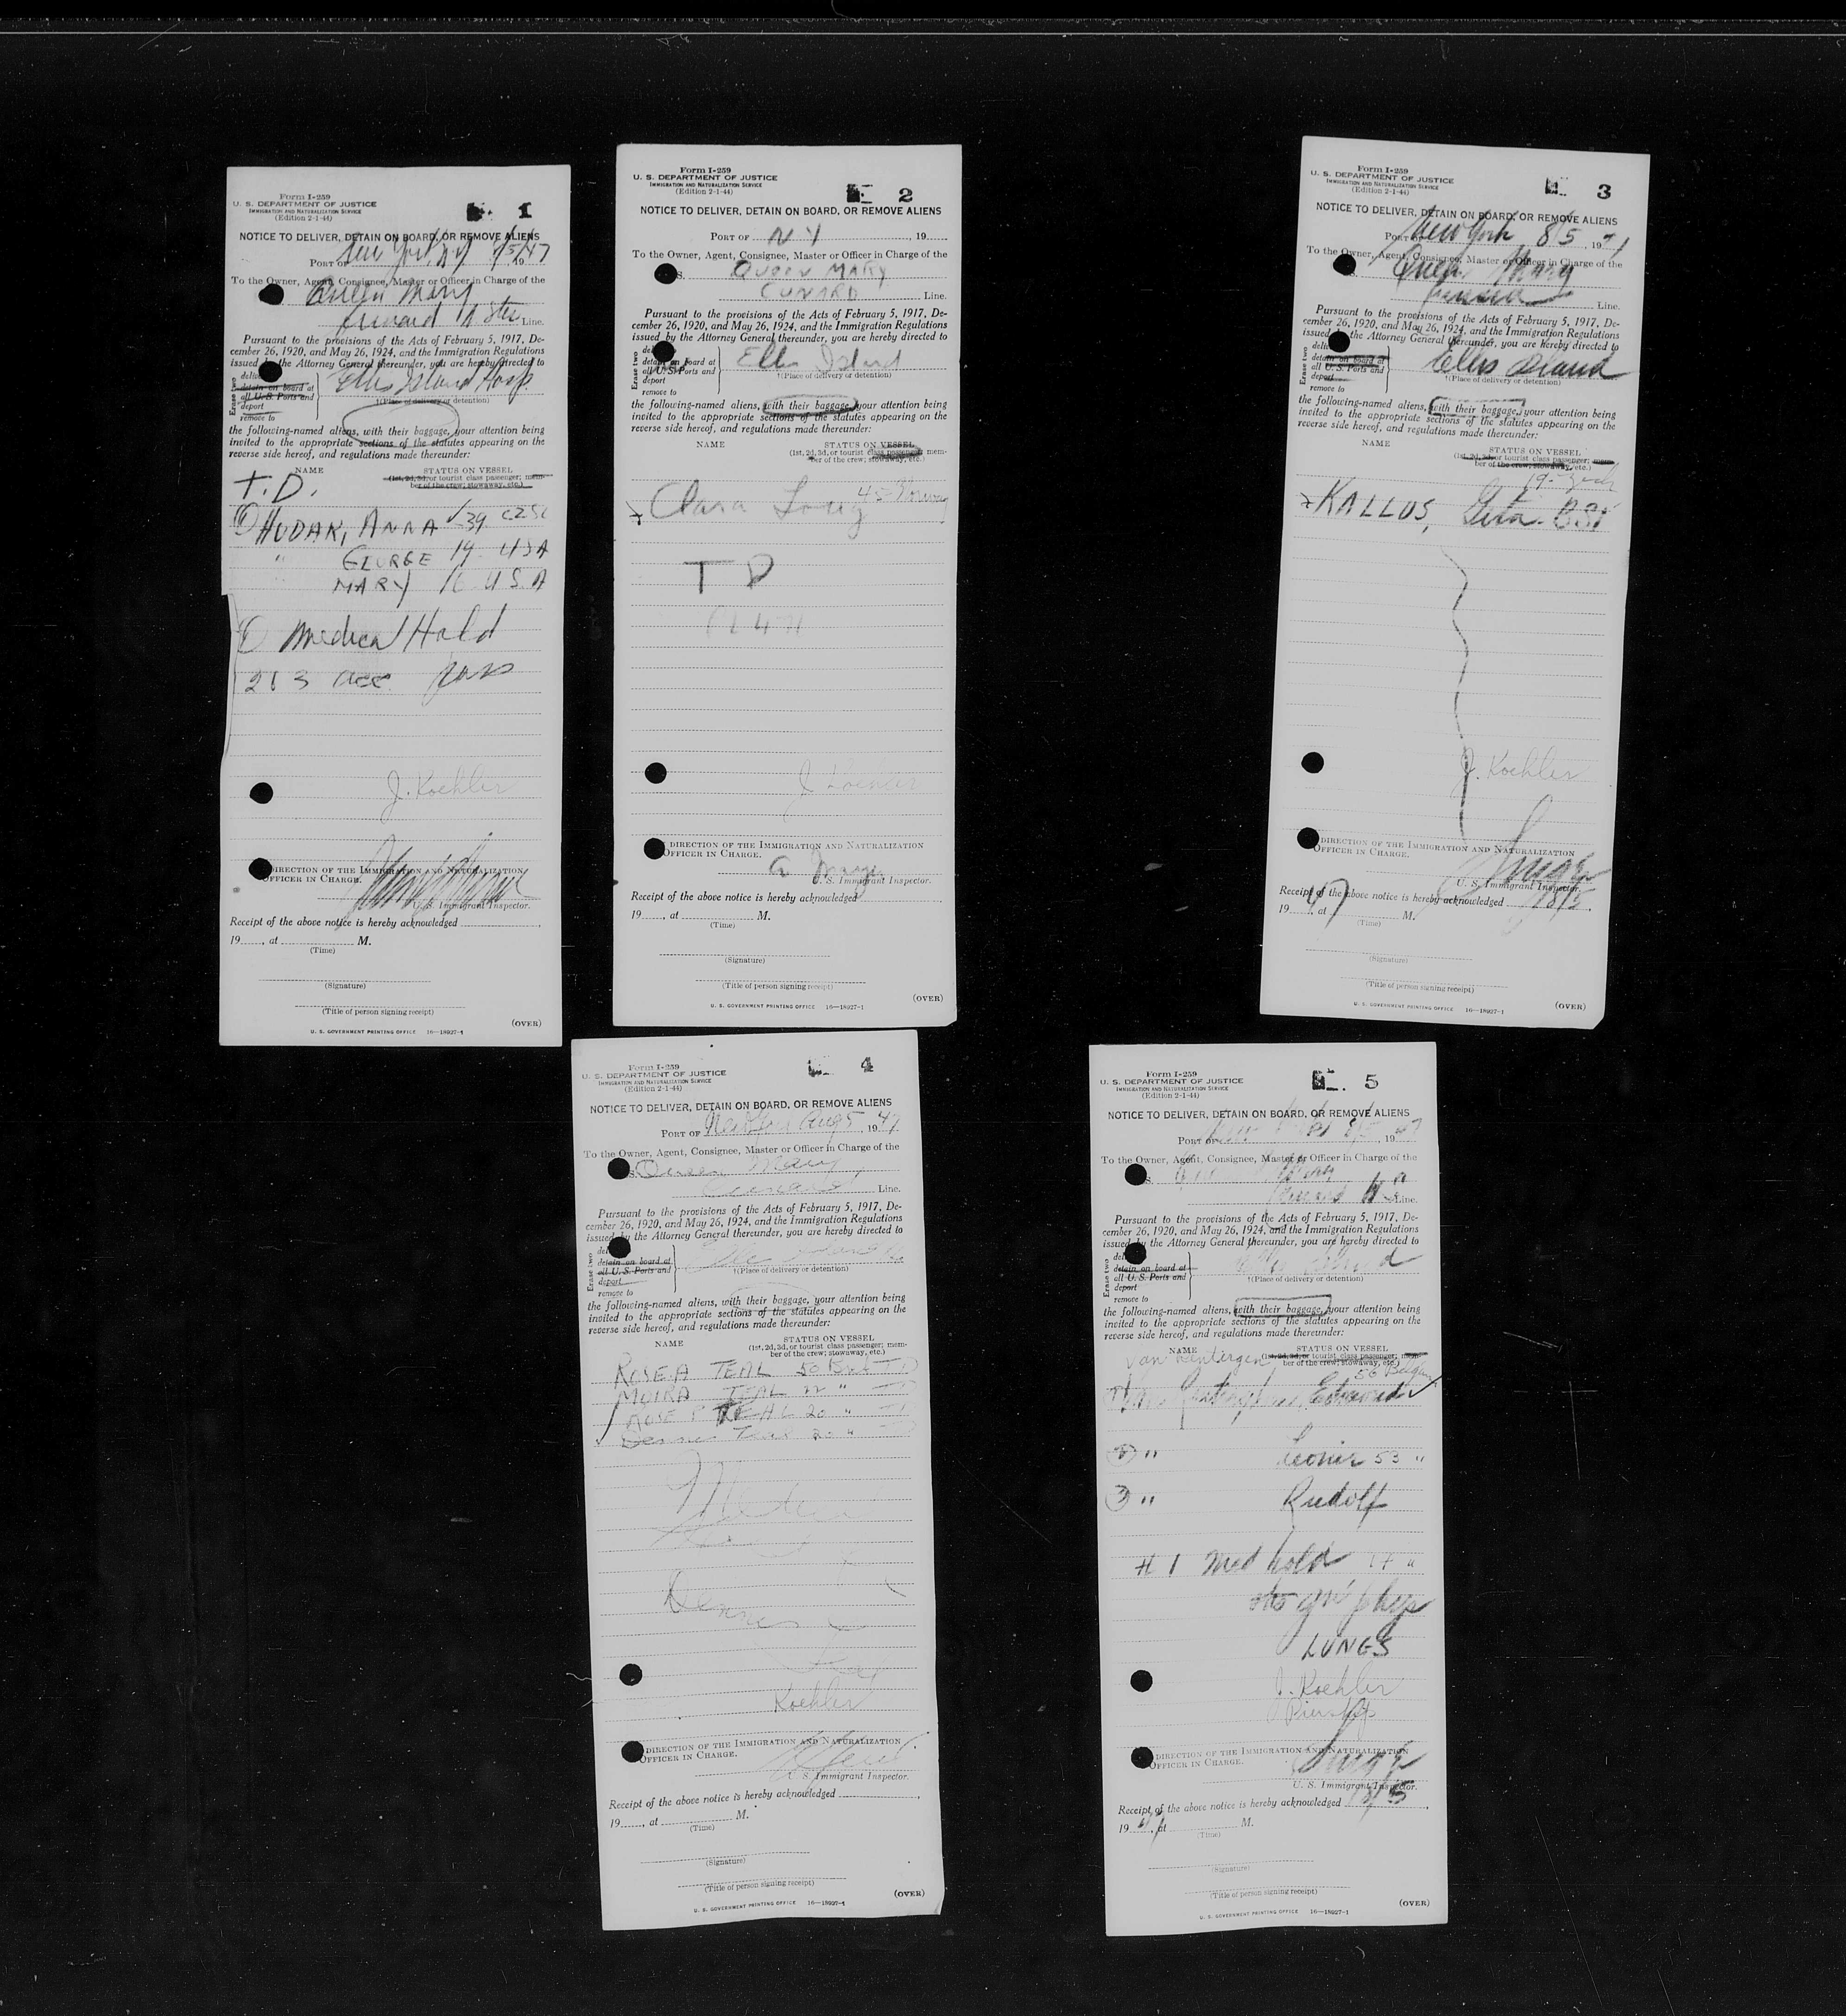 Form I-259
U. S. DEPARTMENT OF JUSTICE
IMMIGRATION AND NATURALIZATION SERVICE
(Edition 2-1-44)
1
NOTICE TO DELIVER, DETAIN ON BOARD, OR REMOVE ALIENS
PORT OF New York, NY 8/5/47
19
To the Owner, Agent, Consignee, Master or Officer in Charge of the
Queen Mary
Cunard W Star Line.
Pursuant to the provisions of the Acts of February 5, 1917, De-
cember 26, 1920, and May 26, 1924, and the Immigration Regulations
issued by the Attorney General thereunder, you are hereby directed to
Erase two
detain on board at
all U. S. Ports and
deport
remove to
Ellis Island Hosp
†(Place of delivery or detention)
the following-named aliens, with their baggage, your attention being
invited to the appropriate sections of the statutes appearing on the
reverse side hereof, and regulations made thereunder:
NAME
STATUS ON VESSEL
(1st, 2d, 3d, or tourist class passenger; mem-
ber of the crew; stowaway, etc.)
T.D.
HUDAK, ANNA 39
" GEORGE 19 USA
MARY 16 U S A
Medical Hold
2 & 3 acc
J. Koehler
DIRECTION OF THE IMMIGRATION AND NATURALIZATION
OFFICER IN CHARGE.
U. S. Immigrant Inspector.
Receipt of the above notice is hereby acknowledged
19......, at M.
(Time)
(Signature)
(Title of person signing receipt)
(OVER)
U. S. GOVERNMENT PRINTING OFFICE 16—18927-1
Form I-259
U. S. DEPARTMENT OF JUSTICE
IMMIGRATION AND NATURALIZATION SERVICE
(Edition 2-1-44)
2
NOTICE TO DELIVER, DETAIN ON BOARD, OR REMOVE ALIENS
PORT OF N Y , 19
To the Owner, Agent, Consignee, Master or Officer in Charge of the
S. QUEEN MARY
CUNARD Line.
Pursuant to the provisions of the Acts of February 5, 1917, De-
cember 26, 1920, and May 26, 1924, and the Immigration Regulations
issued by the Attorney General thereunder, you are hereby directed to
Erase two
detain on board at
all U. S. Ports and
deport
remove to
Ellis Island
†(Place of delivery or detention)
the following-named aliens, with their baggage, your attention being
invited to the appropriate sections of the statutes appearing on the
reverse side hereof, and regulations made thereunder:
NAME
STATUS ON VESSEL
(1st, 2d, 3d, or tourist class passenger; mem-
ber of the crew; stowaway, etc.)
Clara 45
T D
J Koehler
DIRECTION OF THE IMMIGRATION AND NATURALIZATION
OFFICER IN CHARGE.
U. S. Immigrant Inspector.
Receipt of the above notice is hereby acknowledged
19......, at M.
(Time)
(Signature)
(Title of person signing receipt)
(OVER)
U. S. GOVERNMENT PRINTING OFFICE 16—18927-1
Form I-259
U. S. DEPARTMENT OF JUSTICE
IMMIGRATION AND NATURALIZATION SERVICE
(Edition 2-1-44)
3
NOTICE TO DELIVER, DETAIN ON BOARD, OR REMOVE ALIENS
PORT OF New York 8/5 , 19
To the Owner, Agent, Consignee, Master or Officer in Charge of the
Queen Mary
Cunard Line.
Pursuant to the provisions of the Acts of February 5, 1917, De-
cember 26, 1920, and May 26, 1924, and the Immigration Regulations
issued by the Attorney General thereunder, you are hereby directed to
Erase two
detain on board at
all U. S. Ports and
deport
remove to
Ellis Island
†(Place of delivery or detention)
the following-named aliens, with their baggage, your attention being
invited to the appropriate sections of the statutes appearing on the
reverse side hereof, and regulations made thereunder:
NAME
STATUS ON VESSEL
(1st, 2d, 3d, or tourist class passenger; mem-
ber of the crew; stowaway, etc.)
19
KALLUS, Gita BSI
J. Koehler
DIRECTION OF THE IMMIGRATION AND NATURALIZATION
OFFICER IN CHARGE.
U. S. Immigrant Inspector.
Receipt of the above notice is hereby acknowledged 8/5
19 47, at M.
(Time)
(Signature)
(Title of person signing receipt)
(OVER)
U. S. GOVERNMENT PRINTING OFFICE 16—18927-1
Form I-259
U. S. DEPARTMENT OF JUSTICE
IMMIGRATION AND NATURALIZATION SERVICE
(Edition 2-1-44)
4
NOTICE TO DELIVER, DETAIN ON BOARD, OR REMOVE ALIENS
PORT OF New York Aug 5 , 19 47
To the Owner, Agent, Consignee, Master or Officer in Charge of the
S. Queen Mary
Cunard Line.
Pursuant to the provisions of the Acts of February 5, 1917, De-
cember 26, 1920, and May 26, 1924, and the Immigration Regulations
issued by the Attorney General thereunder, you are hereby directed to
Erase two
detain on board at
all U. S. Ports and
deport
remove to
Ellis Island
†(Place of delivery or detention)
the following-named aliens, with their baggage, your attention being
invited to the appropriate sections of the statutes appearing on the
reverse side hereof, and regulations made thereunder:
NAME
STATUS ON VESSEL
(1st, 2d, 3d, or tourist class passenger; mem-
ber of the crew; stowaway, etc.)
ROSE A TEAL 50 Brit TD
MOIRA TEAL 22 " TD
ROSE P TEAL 20 " TD
Dennis Teal 20 " TD
Dennis
Koehler
DIRECTION OF THE IMMIGRATION AND NATURALIZATION
OFFICER IN CHARGE.
U. S. Immigrant Inspector.
Receipt of the above notice is hereby acknowledged
19......, at M.
(Time)
(Signature)
(Title of person signing receipt)
(OVER)
U. S. GOVERNMENT PRINTING OFFICE 16—18927-1
Form I-259
U. S. DEPARTMENT OF JUSTICE
IMMIGRATION AND NATURALIZATION SERVICE
(Edition 2-1-44)
5
NOTICE TO DELIVER, DETAIN ON BOARD, OR REMOVE ALIENS
PORT OF New York 8/5 , 19 47
To the Owner, Agent, Consignee, Master or Officer in Charge of the
S. Mary
Cunard W S Line.
Pursuant to the provisions of the Acts of February 5, 1917, De-
cember 26, 1920, and May 26, 1924, and the Immigration Regulations
issued by the Attorney General thereunder, you are hereby directed to
Erase two
detain on board at
all U. S. Ports and
deport
remove to
Ellis Island
†(Place of delivery or detention)
the following-named aliens, with their baggage, your attention being
invited to the appropriate sections of the statutes appearing on the
reverse side hereof, and regulations made thereunder:
NAME
STATUS ON VESSEL
(1st, 2d, 3d, or tourist class passenger; mem-
ber of the crew; stowaway, etc.)
Van 56
Edmond
② " 53 "
③ " Rudolf
# 1 Med hold 17 "
LUNGS
J. Koehler
DIRECTION OF THE IMMIGRATION AND NATURALIZATION
OFFICER IN CHARGE.
U. S. Immigrant Inspector.
Receipt of the above notice is hereby acknowledged 8/5
19 47, at M.
(Time)
(Signature)
(Title of person signing receipt)
(OVER)
U. S. GOVERNMENT PRINTING OFFICE 16—18927-1